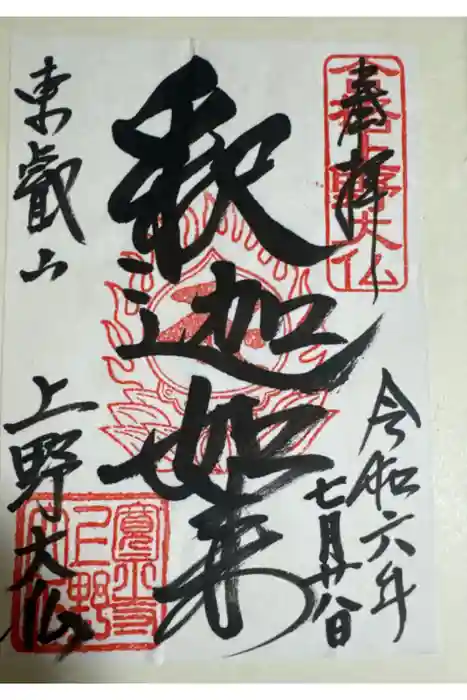 奉拝
上野大仏
令和六年
七月廿八日
釈迦如来
東叡山
上野大仏